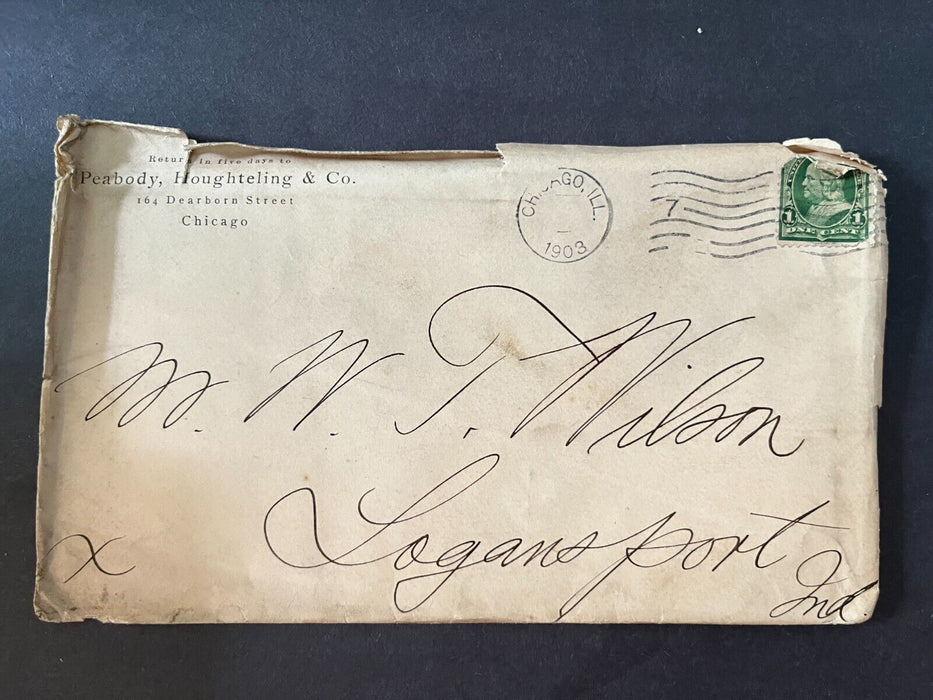 Return in five days to
Peabody, Houghteling & Co.
164 Dearborn Street
Chicago
CHICAGO, ILL.
1903
7
1 1
ONE CENT
Mr. W. T. Wilson
Logansport
Ind.
X